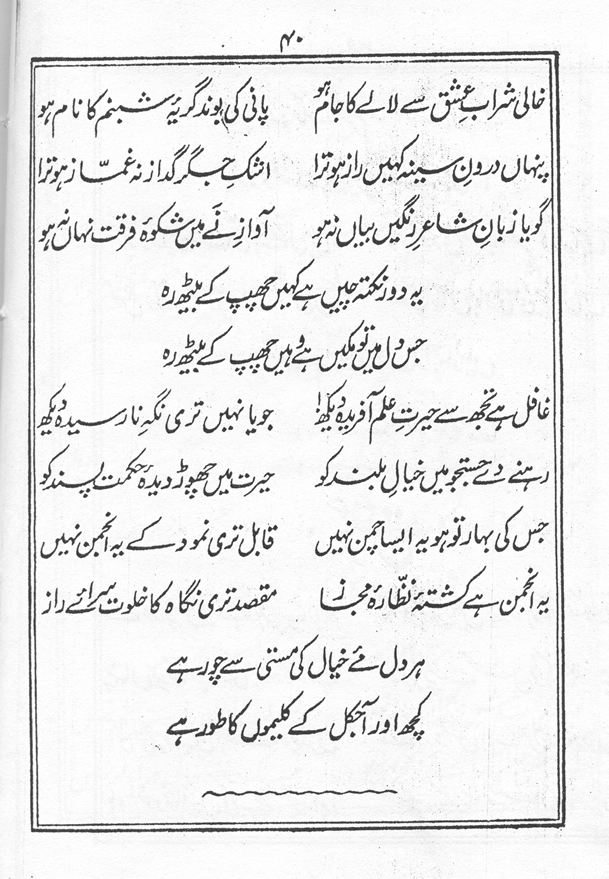 ۴۰
خالی شرابِ عشق سے لالے کا جام ہو پانی کی بوند گریۂ شبنم کا نام ہو
پنہاں درونِ سینہ کہیں راز ہو ترا اشکِ جگر گداز نہ غمّاز ہو ترا
گویا زبانِ شاعرِ رنگیں بیاں نہ ہو آوازِ نَے میں شکوۂ فرقت نہاں نہ ہو
یہ دور نکتہ چیں ہے کہیں چھپ کے بیٹھ رہ
جس دل میں تو مکیں ہے وہیں چھپ کے بیٹھ رہ
غافل ہے تجھ سے حیرتِ علم آفریدہ دیکھ! جویا نہیں تری نگہِ نارسیدہ دیکھ
رہنے دے جستجو میں خیالِ بلند کو حیرت میں چھوڑ دیدۂ حکمت پسند کو
جس کی بہار تو ہو یہ ایسا چمن نہیں قابل تری نمود کے یہ انجمن نہیں
یہ انجمن ہے کشتۂ نظّارۂ مجاز مقصد تری نگاہ کا خلوت سرائے راز
ہر دل مئے خیال کی مستی سے چور ہے
کچھ اور آجکل کے کلیموں کا طور ہے